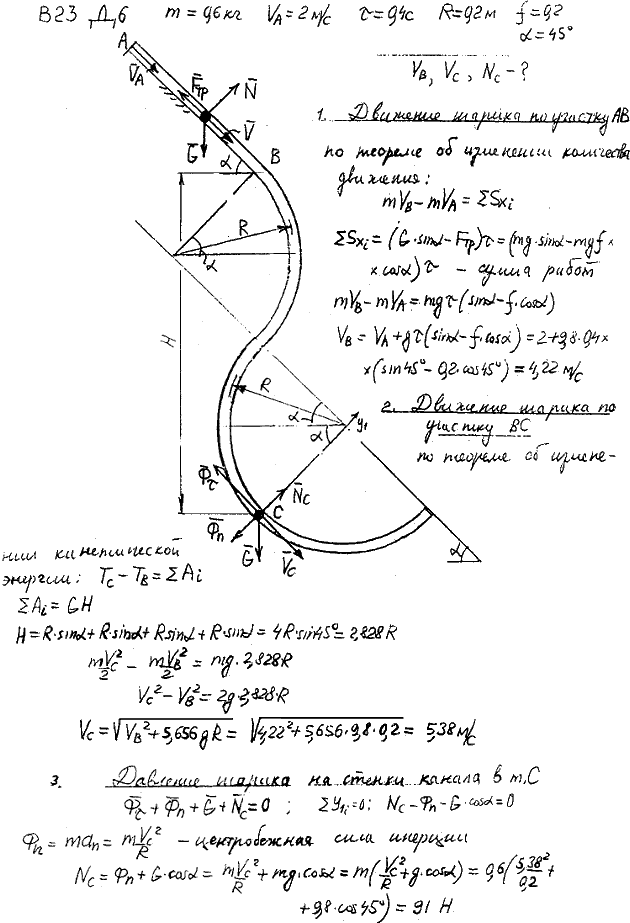 В23 Д6 m = 0,6 кг V_A = 2 м/с τ = 0,4с R = 0,2 м f = 0,2
α = 45°
V_B, V_C, N_C - ?
A
V̄_A
F̄_тр
N̄
V̄
Ḡ
α
B
1. Движение шарика по участку АВ
по теореме об изменении количества
движения:
mV_B - mV_A = ΣS_xi
ΣS_xi = (G·sinα - F_тр)τ = (mg·sinα - mgf×
× cosα)τ - сумма работ
mV_B - mV_A = mgτ(sinα - f·cosα)
V_B = V_A + gτ(sinα - f·cosα) = 2 + 9,8·0,4×
×(sin45° - 0,2·cos45°) = 4,22 м/с
R
α
H
R
α
α
y₁
2. Движение шарика по
участку ВС
по теореме об измене-
Φ̄_τ
N̄_C
C
Φ̄_n
Ḡ
V̄_C
α
нии кинетической
энергии: T_C - T_B = ΣA_i
ΣA_i = GH
H = R·sinα + R·sinα + R sinα + R·sinα = 4R·sin45° = 2,828R
mV_C²/2 - mV_B²/2 = mg·2,828R
V_C² - V_B² = 2g·2,828·R
V_C = √(V_B² + 5,656gR) = √(4,22² + 5,656·9,8·0,2) = 5,38 м/с
3. Давление шарика на стенки канала в т. С
Φ̄_τ + Φ̄_n + Ḡ + N̄_C = 0 ; ΣY_1i = 0; N_C - Φ_n - G·cosα = 0
Φ_n = ma_n = mV_C²/R - центробежная сила инерции
N_C = Φ_n + G·cosα = mV_C²/R + mg·cosα = m(V_C²/R + g·cosα) = 0,6(5,38²/0,2 +
+ 9,8·cos45°) = 91 Н